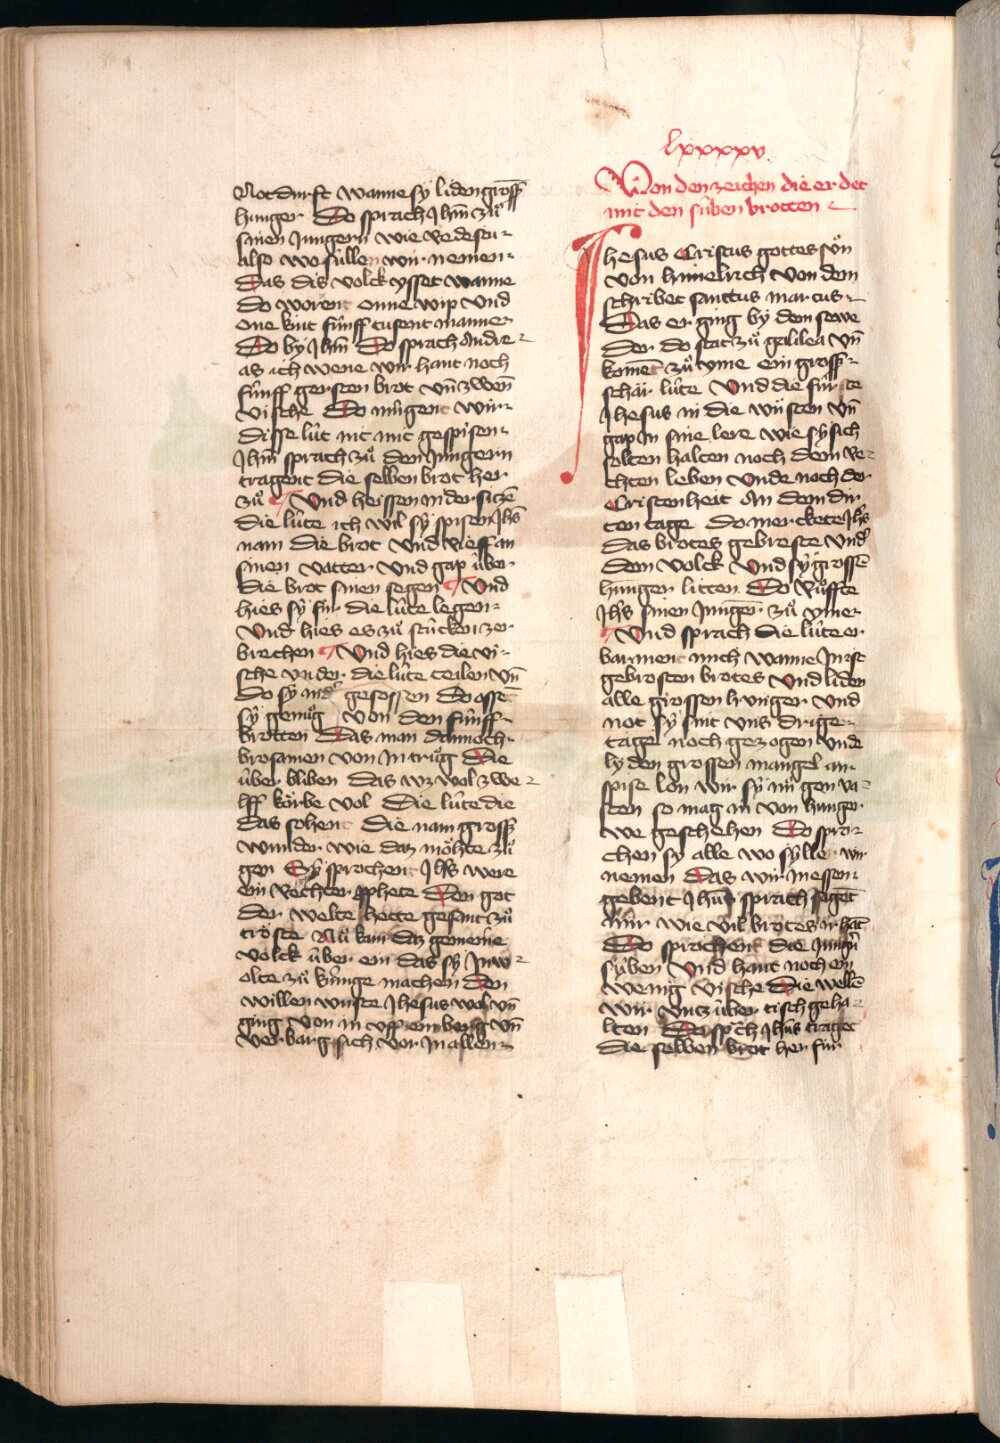 Notdurft wanne sÿ liden groſſ
hunger Do ſprach Jhm̄ zů
ſinen Jungern wie redeſtu
Alſo wo ſüllen wir nemen
Das dis volck yſſet wanne
do worent onne wip Vnd
one kint fünff tuſent manner
Do bÿ Jhm̄ Do ſprach Andre
as ich wene wir hant noch
fünff gerſten brot vn̄ zwen
viſche Do mügent wir
diſſe lüt nit mit geſpiſen
Jhm̄ ſprach zů den Jungern
tragent die ſelben brot her
zů Vnd heiſſen nider ſitzē
die lüte ich wil ſÿ ſpiſen Jhs̄
nam die brot Vnd rieff an
ſinen vatter Vnd gap über
die brot ſinen ſegen Vnd
hies ſÿ für die lüte legen
Vnd hies es zů ſtücken zer
brechen Vnd hies die vi
ſche vnder die lüte teilen vn̄
do ſÿ nider geſoſſen Do oſſēt
ſÿ genůg von den fünff
brotten Das man dannoch
broſamen von in trůg Die
über bliben das wz wol zwe
lff körbe vol Die lüte die
das ſohent Die nam groſſ
wunder wie daz möhte zů
gen Sÿ ſprochent Jhs̄ were
ein rechter pphete Den got
der welte hette geſant zů
tröſte Nů kam daz gemeine
volck über ein das ſÿ In wo
olte zů künige machen Den
willen wuſte Jheſus wol vn̄
ging von in vff ein berg vn̄
verbarg ſich vor in allen
lxxxxv
Von den zeichen die er det
mit den ſüben brotten
Jheſus Criſtus gottes ſůn
von himelrich von dem
ſchribet ſanttus marcus
Das er ging bÿ dem ſewe
der do ſtat zů galilea vn̄
koment zů yme ein groſſ
ſchar lüte Vnd die fůrte
Jheſus in die wüſten vn̄
gap In ſine lere wie ſÿ ſich
ſolten halten noch dem re
chten lieben Vnde noch der
Criſtenheit An dem dir
ten tage do merckete Jhs̄
das brotes gebreſte Vnd
dem volck Vnd ſÿ groſſē
hunger litten Do rüffte
Jhs̄ ſinen Junger zů ymer
Vnd ſprach die lüte er
barment mich wanne In iſt
gebroſten brotes Vnd liden
alle groſſen hunger Vnd
not ſÿ ſint vns drige
tage noch gezogen Vnde
lÿden groſſen mangel an
ſpiſe lon wir ſÿ nů gen va
ſten ſo mag in von hunger
we geſchehen Do ſpro
chen ſÿ alle wo ſÿlle wir
nemen Das wir In eſſen
gebent Jhūs ſprach ſagēt
mir wie vil brotes ir hāt
Do ſprachent die Junḡ
ſÿben Vnd hant noch ein
wenig viſche Die wellē
wir vnz über tiſch geha
lten Do ſpch Jhūs traget
die ſelben brot her für